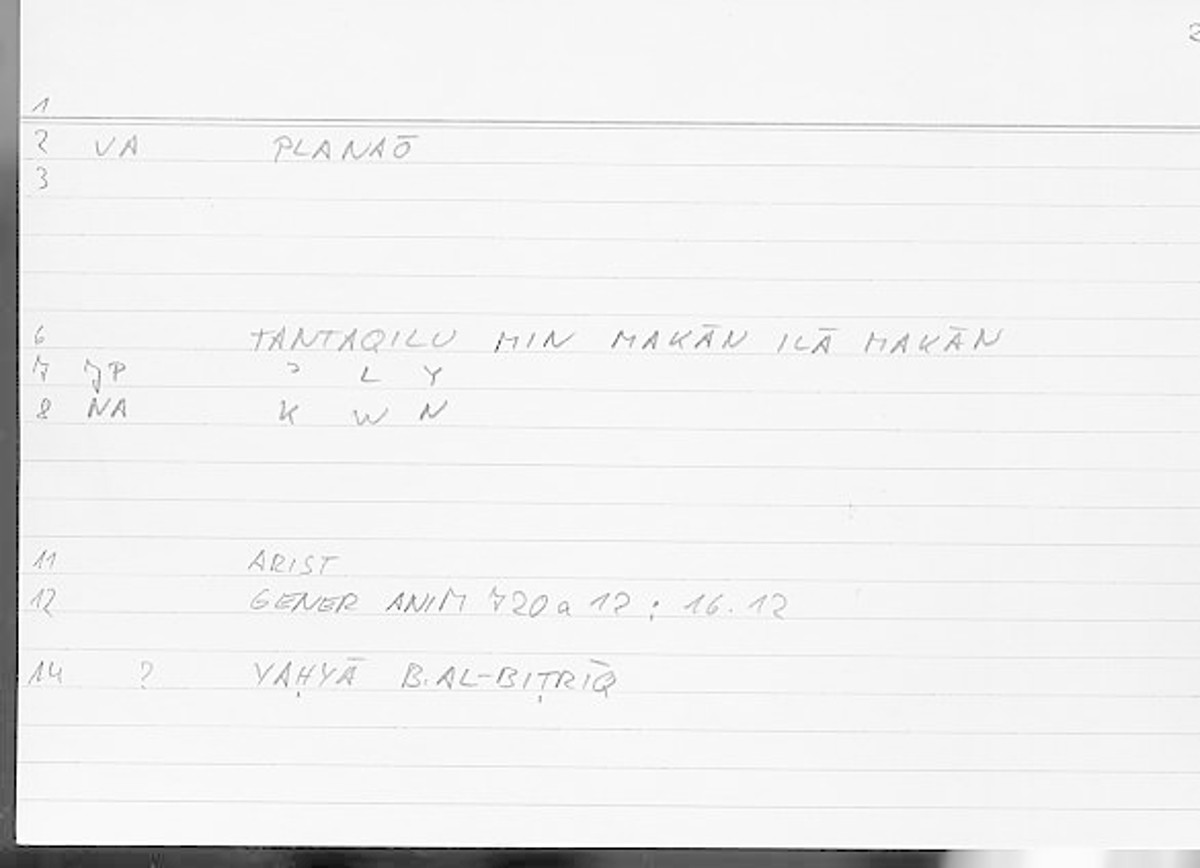 1
2 VA PLANAŌ
3
6 TANTAQILU MIN MAKĀN ILĀ MAKĀN
7 JP ʾ L Y
8 NA K W N
11 ARIST
12 GENER ANIM 720 a 12 : 16.12
14 ? YAḤYĀ B. AL-BIṬRĪQ